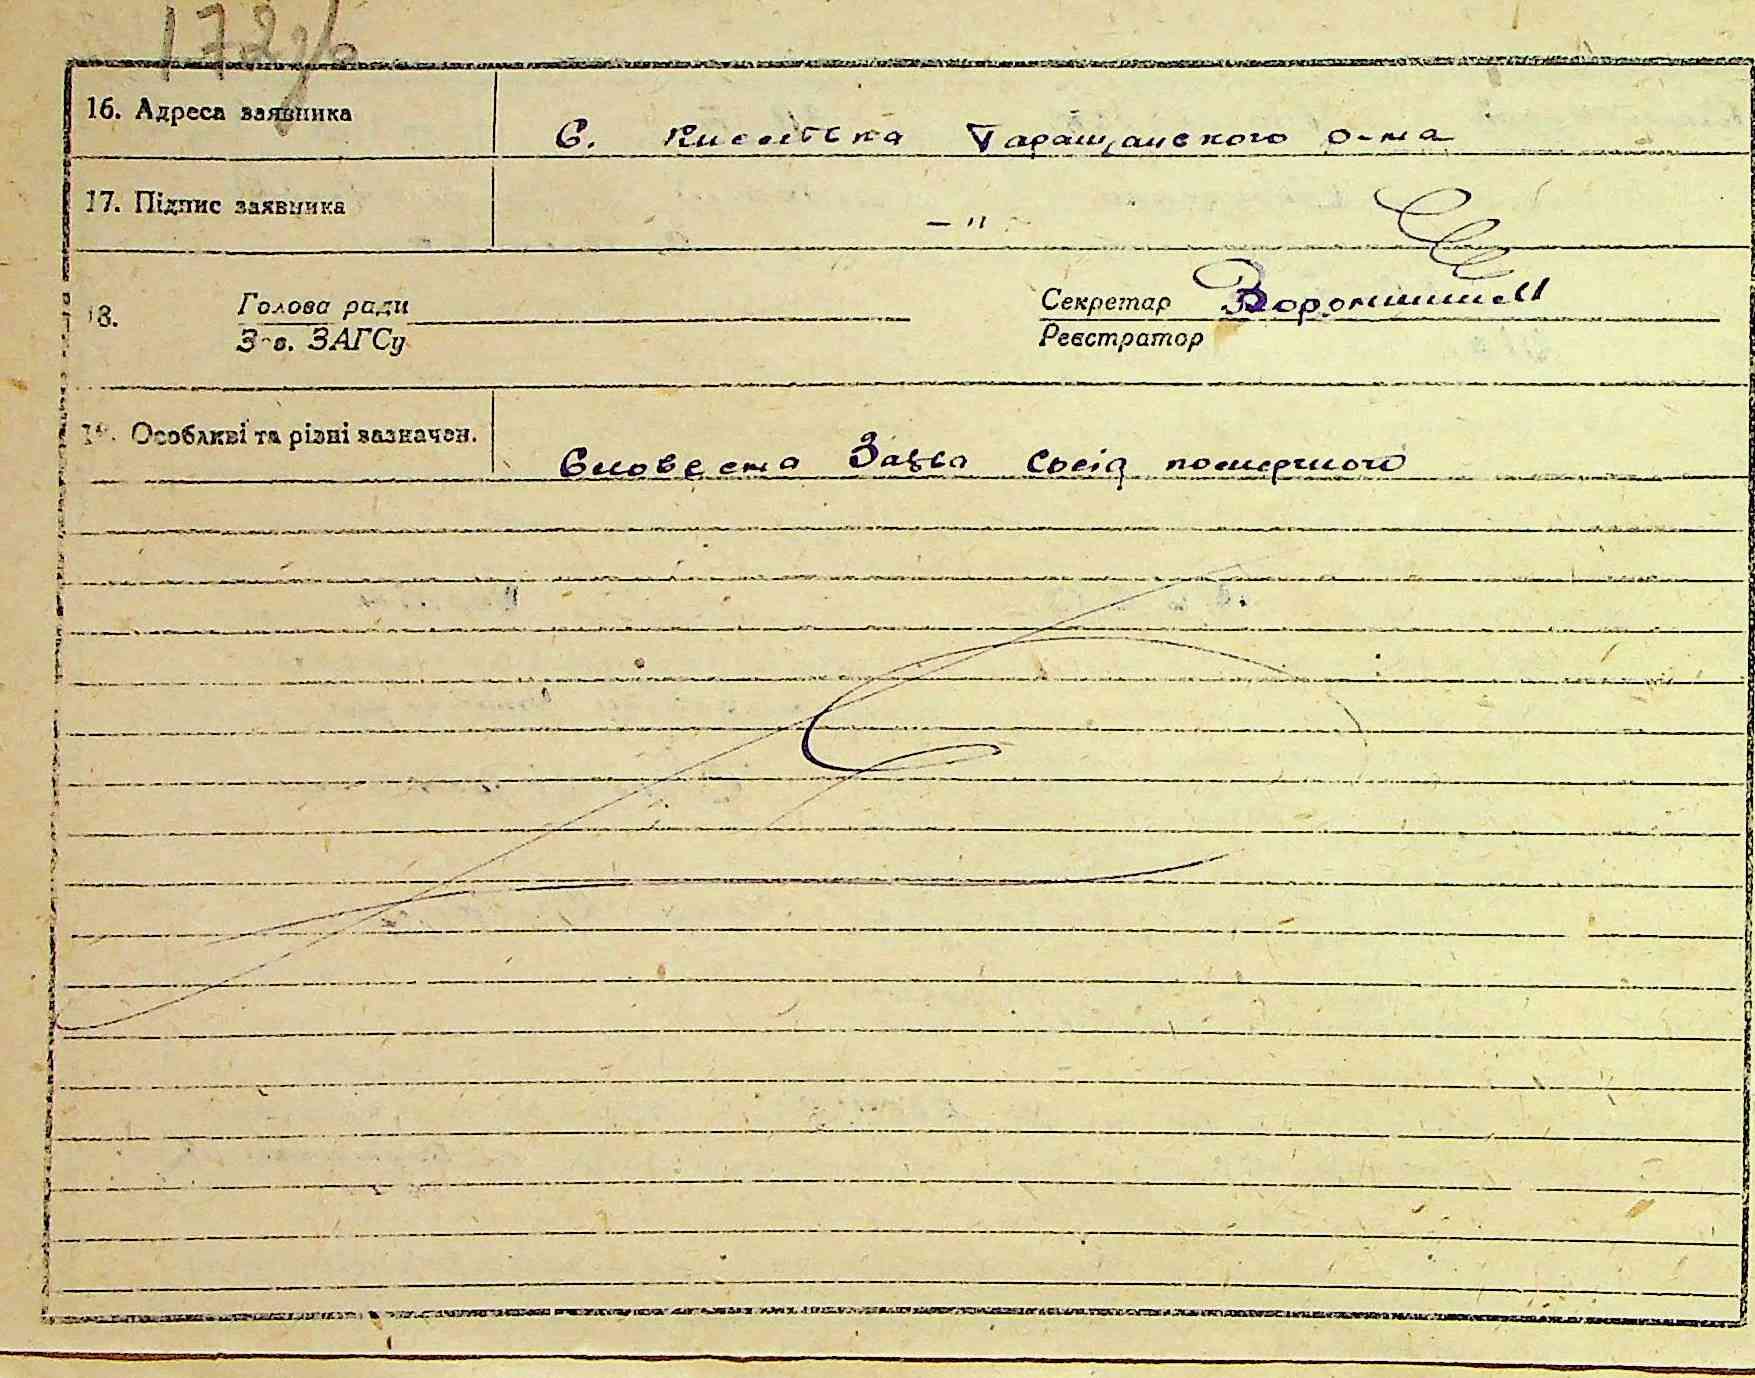 172зв
16. Адреса заявника
С. Кислівка Таращанского р-на
17. Підпис заявника
— "
18. Голова ради Секретар
З-в. ЗАГСу Реєстратор
19. Особливі та різні зазначен.
Словесна Заява свід помершого